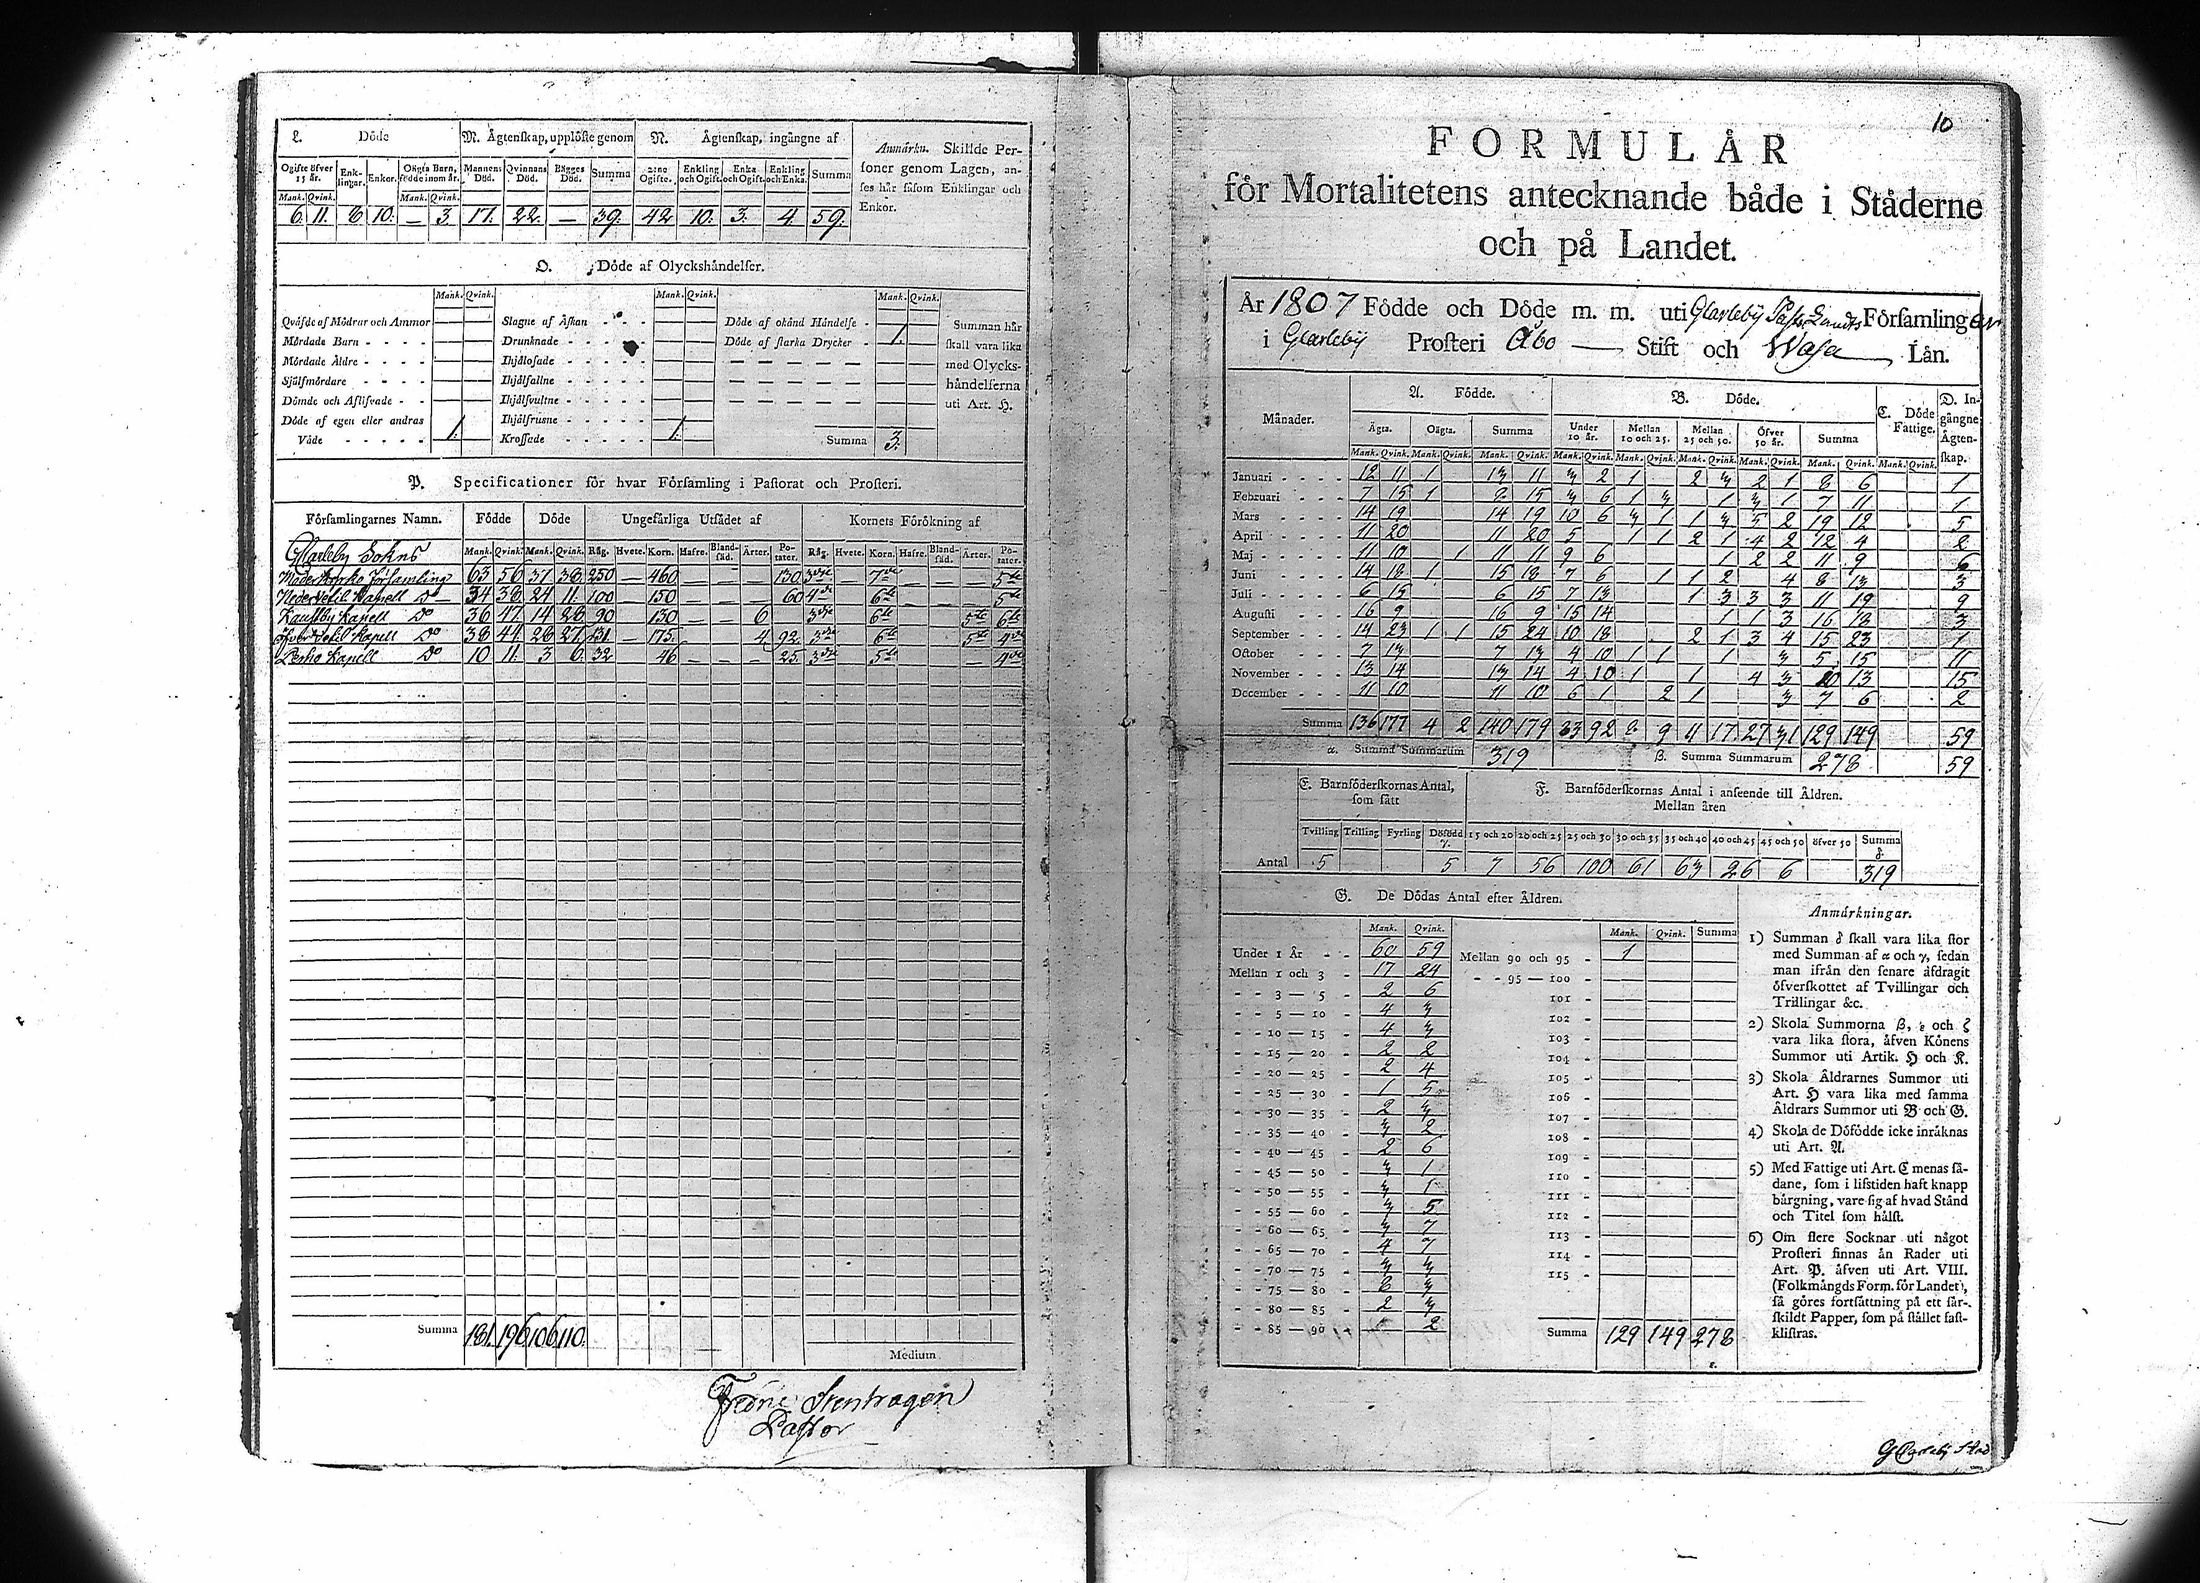 L. Döde
M. Ägtenskap, upplöste genom
N. Ägtenskap, ingångne af
Anmärkn. Skillde Personer genom Lagen, anses här såsom Enklingar och Enkor.
Ogifte öfver 15 år. Enklingar. Enkor. Oägta Barn, födde inom år. Mannens Död. Qvinnans Död. Bägges Död. Summa 2:ne Ogifte. Enkling och Ogift. Enka och Ogift. Enkling och Enka. Summa
Mank. Qvink. Mank. Qvink.
6. 11. 8 10. — 3. 17. 22. — 39. 42 10. 3. 4. 59.
O. Döde af Olyckshändelser.
Mank. Qvink. Mank. Qvink. Mank. Qvink.
Qväfde af Mödrar och Ammor
Mördade Barn - - - -
Mördade Äldre - - - -
Självmördare - - - -
Dömde och Aflifvade - -
Döde af egen eller andras
Våde - - - - - 1.
Slagne af Åskan - - - -
Drunknade - - - - -
Ihjälosade - - - - -
Ihjälfallne - - - - -
Ihjälsvultne - - - - -
Ihjälfrusne - - - - -
Krossade - - - - - 1.
Döde af okänd Händelse - 1.
Döde af starka Drycker -
Summa 3.
Summan här
skall vara lika
med Olycks-
händelserna
uti Art. H.
P. Specificationer för hvar Församling i Pastorat och Prosteri.
Församlingarnes Namn. Födde Döde Ungefärliga Utsädet af Kornets Förökning af
Mank. Qvink. Mank. Qvink. Råg. Hvete. Korn. Hafre. Bland-säd. Ärter. Potater. Råg. Hvete. Korn. Hafre. Bland-säd. Ärter. Potater.
GCarleby Sokns
Moderkyrko Församling 63 56 37 38 250 — 460 — — — 130 3dje 7de — — — 5te
Nedervetil Kapell Do 34 38 24 11 100 — 150 — — — 60 4de 6te — — — 5te
Kaustby Kapell Do 36 47 14 28 90 130 — — 6 3dje 6te 5te 6te
Öfvervetil Kapell Do 38 44 28 27 131 — 175 4 92 3dje 6te 5te 4de
Perho Kapell Do 10 11. 3 6. 32 46 — — — 25. 3dje 5te — 4de
Summa 181. 196 106 110.
Medium
Pastor
10
FORMULÄR
för Mortalitetens antecknande både i Städerne
och på Landet.
År 1807 Födde och Döde m. m. uti GCarleby Past. Landts Församlingar
i GCarleby Prosteri Åbo — Stift och Wasa — Län.
Månader. A. Födde. B. Döde. C. Döde Fattige. D. Ingångne Ägtenskap.
Ägta. Oägta. Summa Under 10 år. Mellan 10 och 25. Mellan 25 och 50. Öfver 50 år. Summa
Mank. Qvink. Mank. Qvink. Mank. Qvink. Mank. Qvink. Mank. Qvink. Mank. Qvink. Mank. Qvink. Mank. Qvink. Mank. Qvink.
Januari - - - - 12 11 1 13 11 3 2 1 2 3 2 1 8 6 1
Februari - - - 7 15 1 8 15 3 6 1 3 1 3 1 7 11 1
Mars - - - - 14 19 14 19 10 6 3 1 1 3 5 2 19 12 5
April - - - - 11 20 11 20 5 1 1 2 1 4 2 12 4 2
Maj - - - - 11 10 1 11 11 9 6 1 2 2 11 9 6
Juni - - - - 14 18 1 15 18 7 6 1 1 2 4 8 13 3
Juli - - - - 6 15 6 15 7 13 1 3 3 3 11 19 9
Augusti - - - 16 9 16 9 15 14 1 1 3 16 18 3
September - - - 14 23 1 1 15 24 10 18 2 1 3 4 15 23 1
October - - - 7 13 7 13 4 10 1 1 1 3 5 15 11
November - - - 13 14 13 14 4 10 1 1 4 3 10 13 15
December - - - 11 10 11 10 6 1 2 1 3 7 6 2
Summa 136 177 4 2 140 179 83 92 8 9 11 17 27 31 129 149 59
α. Summa Summarum 319 β. Summa Summarum 278 59
E. Barnföderskornas Antal, som fått
F. Barnföderskornas Antal i anseende till Åldren. Mellan åren
Tvilling Trilling Fyrling Dödfödd γ. 15 och 20 20 och 25 25 och 30 30 och 35 35 och 40 40 och 45 45 och 50 öfver 50 Summa δ
Antal 5 5 7 56 100 61 63 26 6 319
G. De Dödas Antal efter Åldren.
Mank. Qvink. Mank. Qvink. Summa
Under 1 År - - 60 59
Mellan 1 och 3 - 17 24
- - 3 — 5 - 2 6
- - 5 — 10 - 4 3
- - 10 — 15 - 4 3
- - 15 — 20 - 2 2
- - 20 — 25 - 2 4
- - 25 — 30 - 1 5
- - 30 — 35 - 2 3
- - 35 — 40 - 3 2
- - 40 — 45 - 2 6
- - 45 — 50 - 3 1
- - 50 — 55 - 3 1
- - 55 — 60 - 3 5
- - 60 — 65 - 3 7
- - 65 — 70 - 4 7
- - 70 — 75 - 3 3
- - 75 — 80 - 8 3
- - 80 — 85 - 2 3
- - 85 — 90 2
Mellan 90 och 95 - 1
- - 95 — 100 -
101 -
102 -
103 -
104 -
105 -
106 -
107 -
108 -
109 -
110 -
111 -
112 -
113 -
114 -
115 -
Summa 129 149 278
ε.
Anmärkningar.
1) Summan δ skall vara lika stor
med Summan af α och γ, sedan
man ifrån den senare afdragit
öfverskottet af Tvillingar och
Trillingar &c.
2) Skola Summorna β, ε och ζ
vara lika stora, äfven Könens
Summor uti Artik. H och K.
3) Skola Åldrarnes Summor uti
Art. H vara lika med samma
Åldrars Summor uti B och G.
4) Skola de Döfödde icke inräknas
uti Art. A.
5) Med Fattige uti Art. C menas så-
dane, som i lifstiden haft knapp
bärgning, vare sig af hvad Stånd
och Titel som hälst.
6) Om flere Socknar uti något
Prosteri finnas än Rader uti
Art. P. äfven uti Art. VIII.
(Folkmängds Form. för Landet),
så göres fortsättning på ett sär-
skildt Papper, som på stället fast-
klistras.
GCarleby Stad